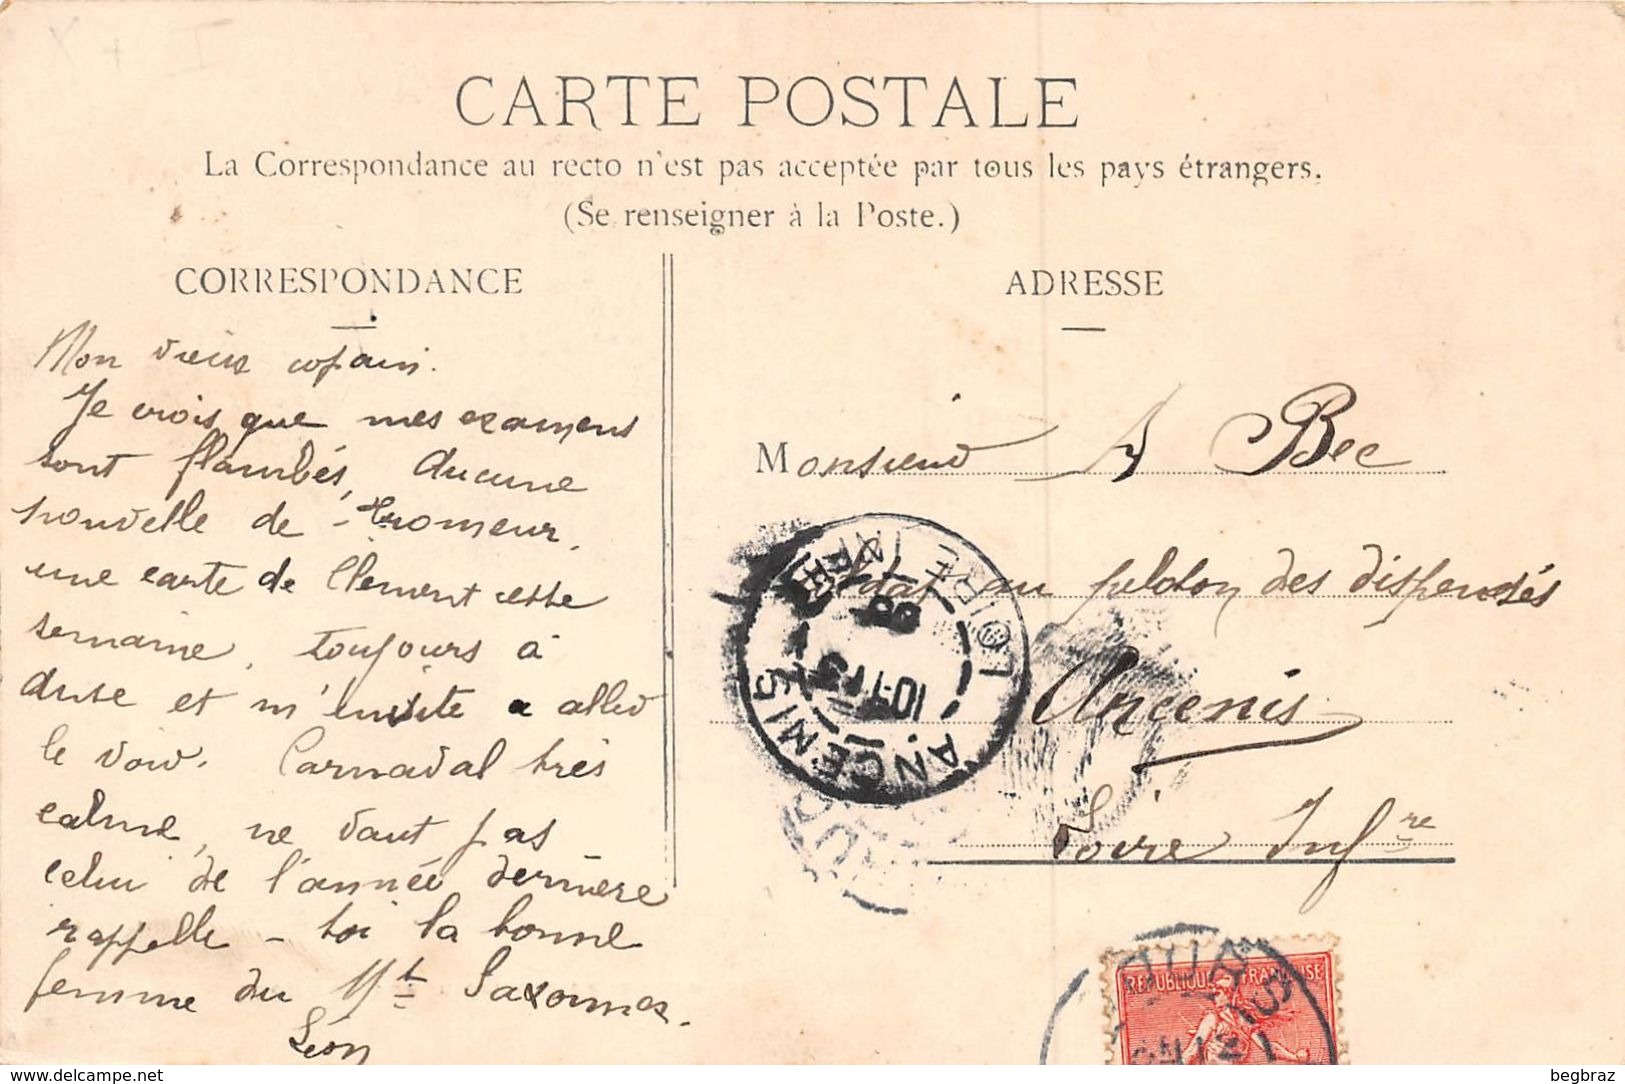 CARTE POSTALE
La Correspondance au recto n'est pas acceptée par tous les pays étrangers.
(Se renseigner à la Poste.)
CORRESPONDANCE
Mon vieux copain.
Je crois que mes examens
sont flambés, Aucune
nouvelle de Tromeur,
une carte de Clément cette
semaine, toujours à
et m'invite a aller
le voir. Carnaval très
calme, ne vaut pas
celui de l'année dernière
rappelle-toi la bonne
femme du Mt
Léon
ADRESSE
Monsieur A Bec
Soldat au peloton des dispensés
Ancenis
Loire Infre
ANCENIS
LOIRE INFRE
REPUBLIQUE FRANÇAISE
begbraz